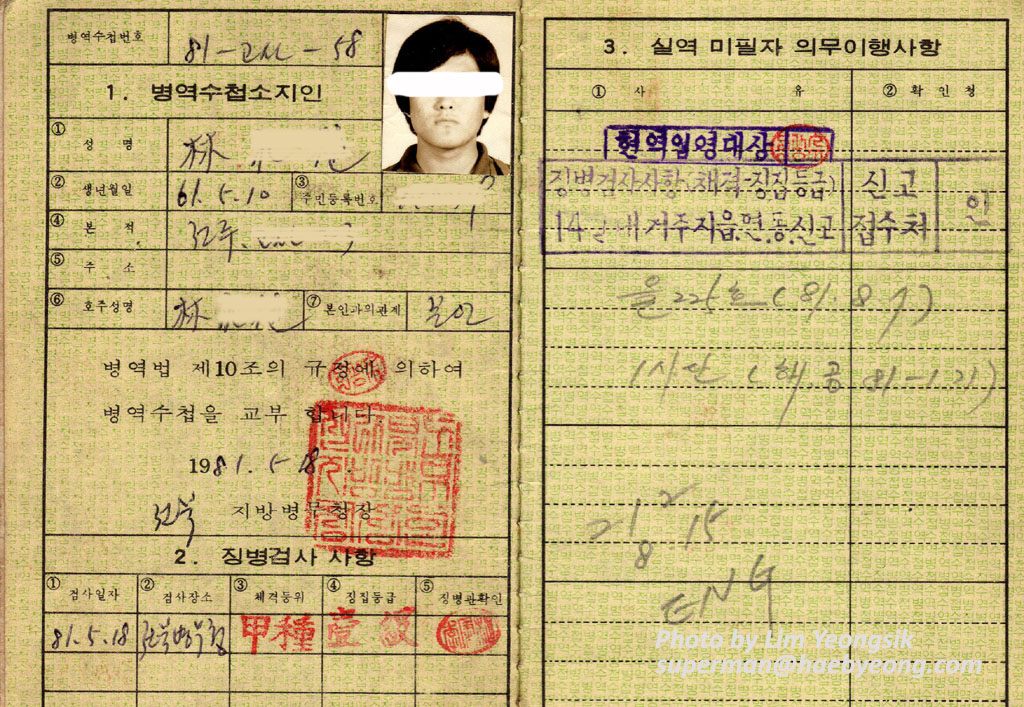 병역수첩번호
81 - 고산 - 58
1. 병역수첩소지인
① 성 명
林
② 생년월일
61. 5. 10
③ 주민등록번호
④ 본 적
전주
⑤ 주 소
⑥ 호주성명
林
⑦ 본인과의관계
본인
병역법 제10조의 규정에 의하여
병역수첩을 교부 합니다
1981. 5. 18.
전북 지방병무청장
2. 징병검사 사항
① 검사일자
② 검사장소
③ 체격등위
④ 징집등급
⑤ 징병관확인
81. 5. 18
전북병무청
甲種
壹級
3. 실역 미필자 의무이행사항
① 사 유
② 확 인 청
현역입영대장
징병검사사항(채적·징집등급)
14일내 거주지읍.면.동.신고
신고
접수처
인
을225호 (81. 8. 7)
1사단 (해 공 81-1 기)
21 2 15
8
ENG
Photo by Lim Yeongsik
superman@haebyeong.com